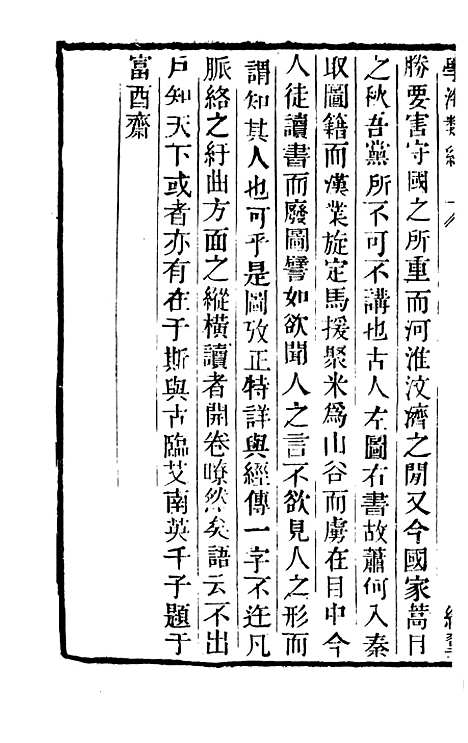 學海類編
勝要害守國之所重而河淮汶濟之閒又今國家蒿目
之秋吾黨所不可不講也古人左圖右書故蕭何入秦
取圖籍而漢業旋定馬援聚米爲山谷而虜在目中今
人徒讀書而廢圖譬如欲聞人之言不欲見人之形而
謂知其人也可乎是圖攷正特詳與經傳一字不迕凡
脈絡之紆曲方面之縱橫讀者開卷瞭然矣語云不出
戶知天下或者亦有在于斯與古臨艾南英千子題于
富酉齋